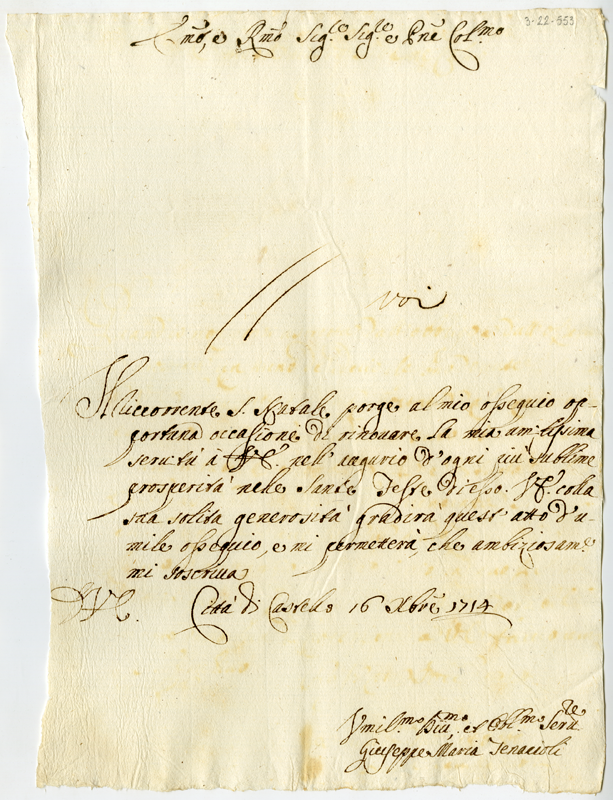 3-22-553
Em̃o, e Rm̃o Sig.e Sig.e e Prñe Col.mo
voi
Il ricorrente S. Natale porge al mio ossequio op-
portuna occasione di rinovare la mia umilissima
servitù à V.E. nell'augurio d'ogni più sublime
prosperità nelle Sante Feste d'esso. V.E. colla
sua solita generosità gradirà quest'atto d'u-
mile ossequio, e mi permetterà, che ambiziosam.e
mi soscriva
D.V.E. Città di Castello 16 Xbrẽ 1714
Vmil.mo Diu.mo et Obl.mo Seru.re
Giuseppe Maria Tenacioli